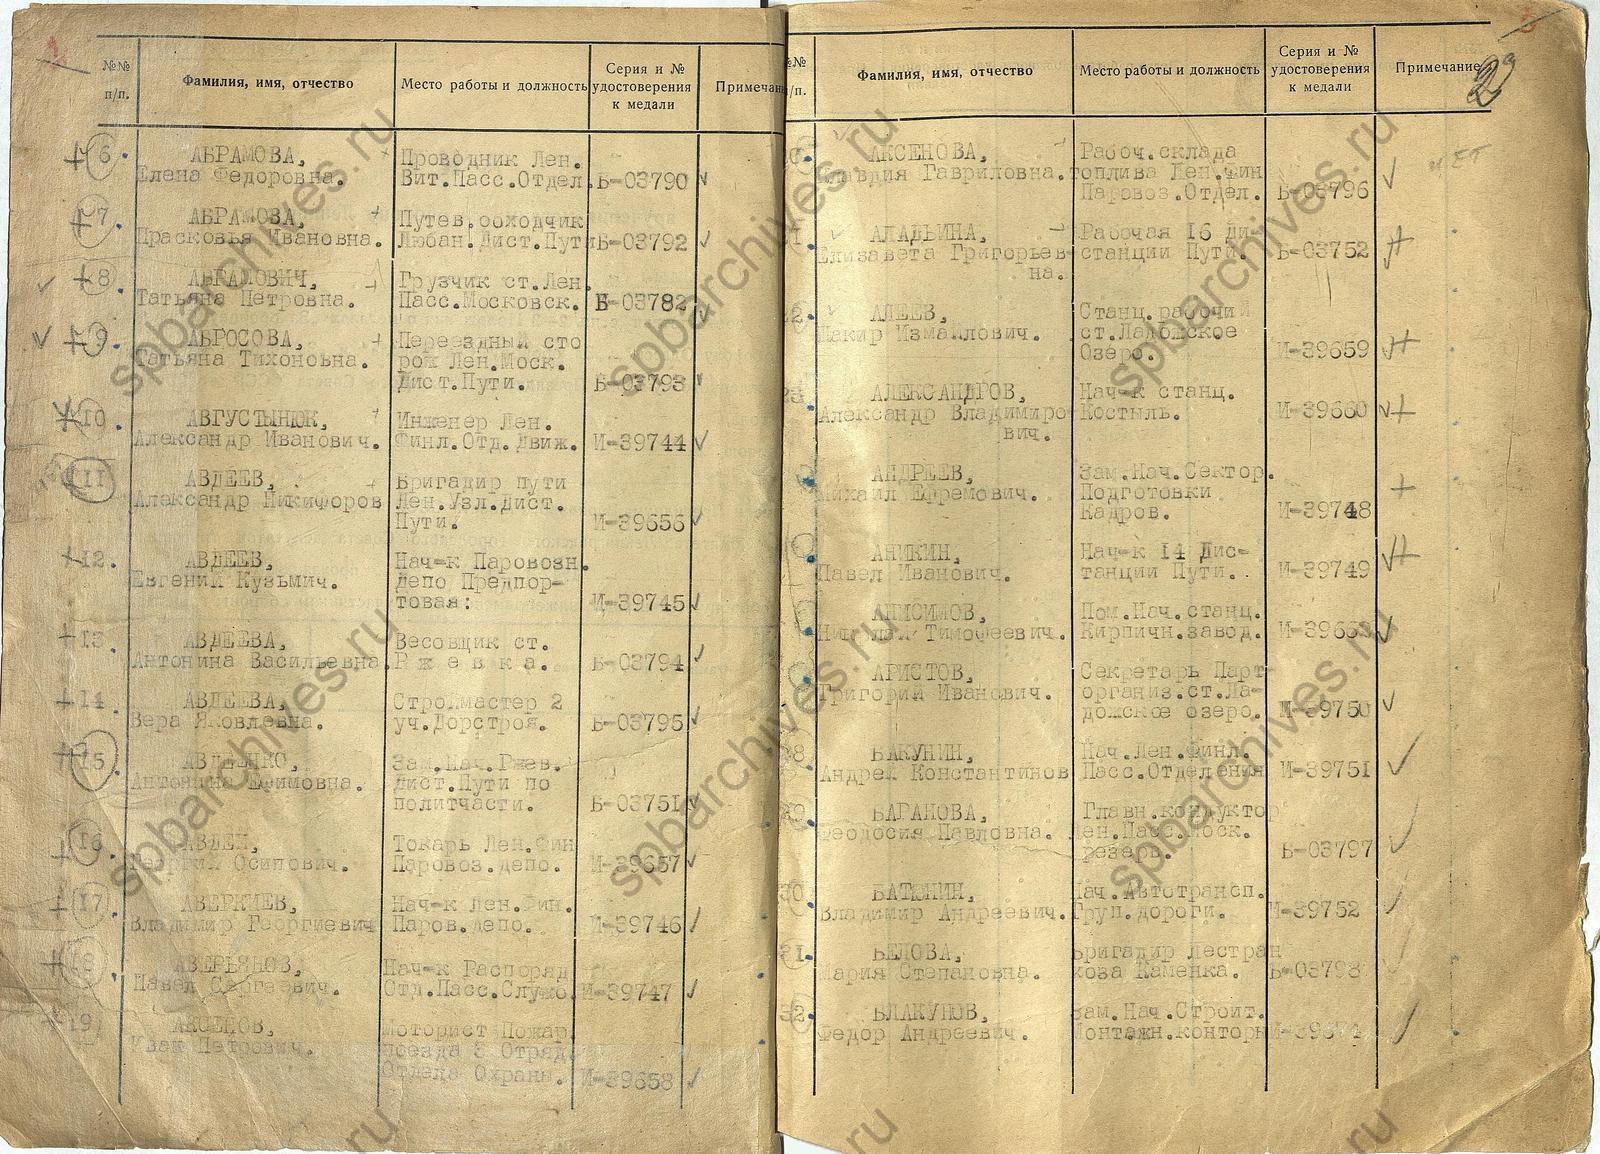 №№ п/п.
Фамилия, имя, отчество
Место работы и должность
Серия и № удостоверения к медали
Примечан
6.
АБРАМОВА,
Елена Федоровна.
Проводник Лен.
Вит.Пасс.Отдел.
Б-03790
7.
АБРАМОВА,
Прасковья Ивановна.
Путев.обходчик
Любан.Дист.Пути
Б-03792
8.
АБРАМОВИЧ,
Татьяна Петровна.
Грузчик ст.Лен.
Пасс.Московск.
Б-03782
9.
АБРОСОВА,
Татьяна Тихоновна.
Переездный сто
рож Лен.Моск.
Дист.Пути.
Б-03793
10.
АВГУСТЫНЮК,
Александр Иванович.
Инженер Лен.
Финл.Отд.Движ.
И-39744
11
АВДЕЕВ,
Александр Никифоров
Бригадир пути
Лен.Узл.Дист.
Пути.
И-39656
12.
АВДЕЕВ,
Евгений Кузьмич.
Нач-к Паровозн.
депо Предпор-
товая:
И-39745
13.
АВДЕЕВА,
Антонина Васильевна.
Весовщик ст.
Ржевка.
Б-03794
14.
АВДЕЕВА,
Вера Яковлевна.
Строймастер 2
уч.Дорстроя.
Б-03795
15.
АВДЕЕНКО,
Антонина Ефимовна.
Зам.Нач.Ржев.
Дист.Пути по
политчасти.
Б-03751
16
АВДЕЙ,
Георгий Осипович.
Токарь Лен.Фин
Паровоз.депо.
И-39657
17.
АВЕРКИЕВ,
Владимир Георгиевич
Нач-к Лен.Фин.
Паров.депо.
И-39746
18.
АВЕРЬЯНОВ,
Павел Сергеевич.
Нач-к Распоряд
Отд.Пасс.Служб.
И-39747
19
АКСЕНОВ,
Иван Петрович.
Моторист Пожар.
поезда 3 Отряд.
Отдела Охраны.
И-39658
№№ п/п.
Фамилия, имя, отчество
Место работы и должность
Серия и № удостоверения к медали
Примечание
2
АКСЕНОВА,
Клавдия Гавриловна.
Рабоч.склада
топлива Лен.Фин
Паровоз.Отдел.
Б-03796
АЛАДЬИНА,
Елизавета Григорьев-
на.
Рабочая 16 Ди-
станции Пути.
Б-03752
АЛЕЕВ,
Шакир Измайлович.
Станц.рабочий
ст.Ладожское
Озеро.
И-39659
АЛЕКСАНДРОВ,
Александр Владимиро-
вич.
Нач-к станц.
Костыль.
И-39660
АНДРЕЕВ,
Михаил Ефремович.
Зам.Нач.Сектор.
Подготовки
Кадров.
И-39748
АНИКИН,
Павел Иванович.
Нач-к 14 Дис-
танции Пути.
И-39749
АНИСИМОВ,
Николай Тимофеевич.
Пом.Нач.станц.
Кирпичн.завод.
АРИСТОВ,
Григорий Иванович.
Секретарь Парт
организ.ст.Ла-
дожское озеро.
И-39750
БАКУНИН,
Андрей Константинов
Нач.Лен.Финл.
Пасс.Отделения
И-39751
БАРАНОВА,
Феодосия Павловна.
Главн.кондуктор
Лен.Пасс.Моск.
резерв.
Б-03797
30.
БАТЯНИН,
Владимир Андреевич.
Нач.Автотрансп.
Груп.дороги.
И-39752
31.
БЕЛОВА,
Мария Степановна.
Бригадир Лестран
хоза Каменка.
32.
БЛАКУНОВ,
Федор Андреевич.
Зам.Нач.Строит.
Монтажн.конторы
spbarchives.ru
spbarchives.ru
spbarchives.ru
spbarchives.ru
spbarchives.ru
spbarchives.ru